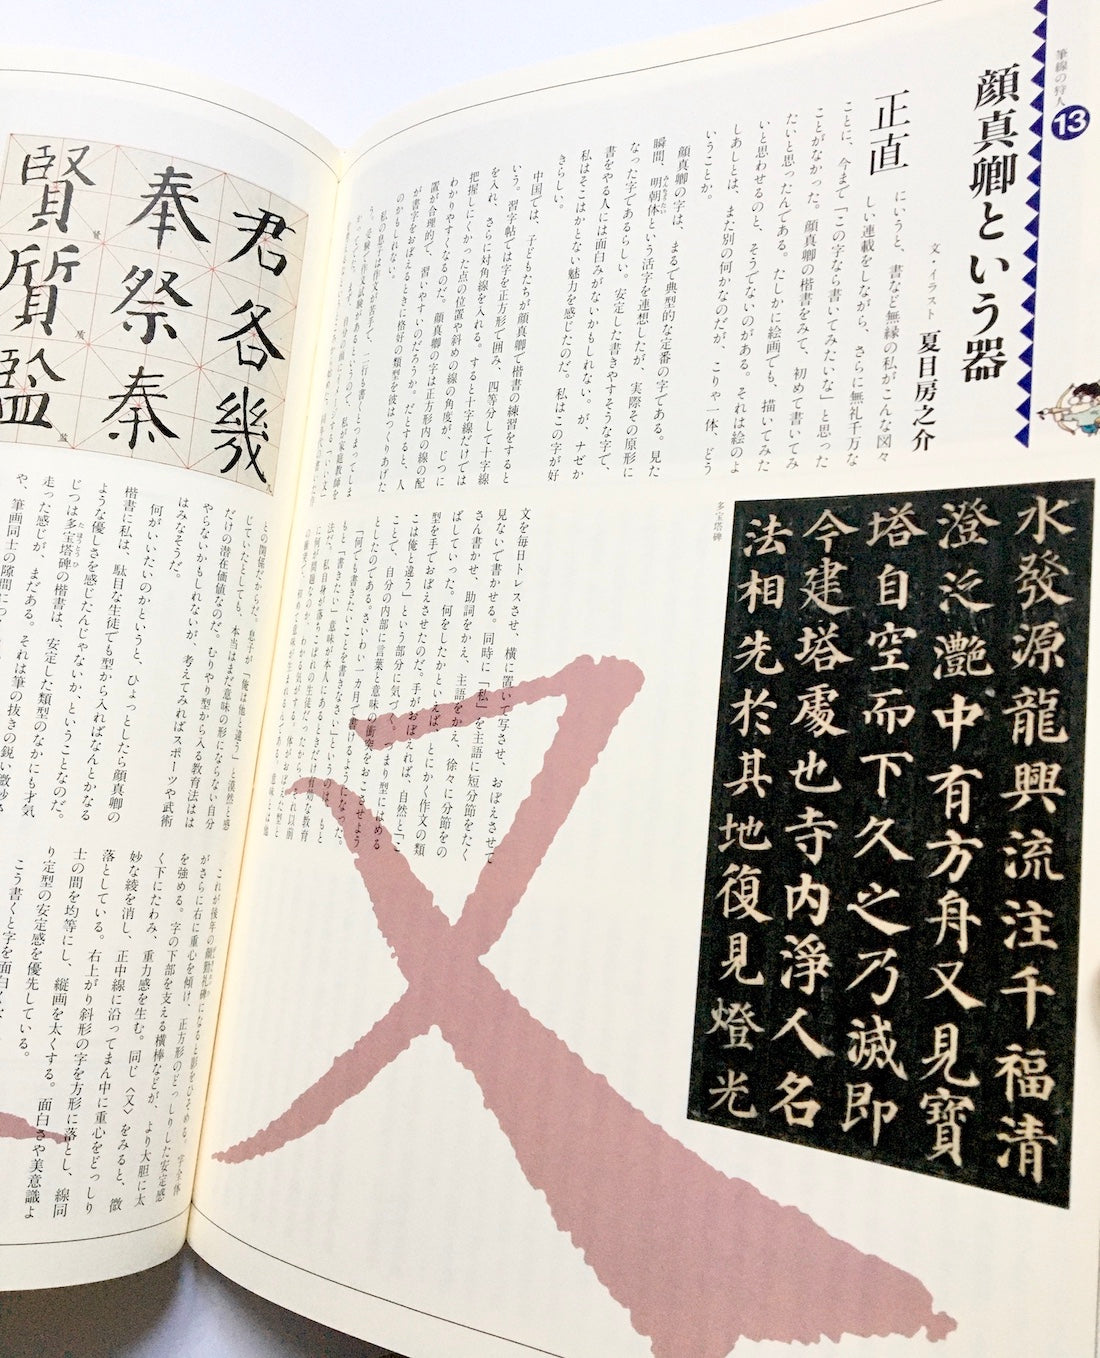 筆線の狩人
13
顔真卿という器
文・イラスト 夏目房之介
正直
にいうと、書など無縁の私がこんな図々
しい連載をしながら、さらに無礼千万な
ことに、今まで「この字なら書いてみたいな」と思った
ことがなかった。顔真卿の楷書をみて、初めて書いてみ
たいと思ったんである。たしかに絵画でも、描いてみた
いと思わせるのと、そうでないのがある。それは絵のよ
しあしとは、また別の何かなのだが、こりゃ一体、どう
いうことか。
顔真卿の字は、まるで典型的な定番の字である。見た
瞬間、明朝体という活字を連想したが、実際その原形に
なった字であるらしい。安定した書きやすそうな字で、
書をやる人には面白みがないかもしれない。が、ナゼか
私はそこはかとない魅力を感じたのだ。私はこの字が好
きらしい。
中国では、子どもたちが顔真卿で楷書の練習をすると
いう。習字帖では字を正方形で囲み、四等分して十字線
を入れ、さらに対角線を入れる。すると十字線だけでは
把握しにくかった点の位置や斜めの線の角度が、じつに
わかりやすくなるのだ。顔真卿の字は正方形内の線の配
置が合理的で、習いやすいのだろうか。だとすると、人
が書字をおぼえるときに格好の類型を彼はつくりあげた
のかもしれない。
私の息子は作文が苦手で、二行も書くとつまってしま
う。受験で作文試験があるというので、私が家庭教師を
文を毎日トレスさせ、横に置いて写させ、おぼえさせて
見ないで書かせる。同時に「私」を主語に短分節をたく
さん書かせ、助詞をかえ、主語をかえ、徐々に分節をの
ばしていった。何をしたかといえば、とにかく作文の類
型を手でおぼえさせたのだ。手がおぼえれば、自然と「こ
こは俺と違う」という部分に気づく。つまり型にはめる
ことで、自分の内部に言葉と意味の衝突をおこさせよう
としたのである。さいわい一カ月で書けるようになった。
「何でも書きたいことを書きなさい」というのは、もと
もと「書きたい」意味が本人にあるときだけ有効な教育
法だ。私自身が落ちこぼれの生徒だったから、それ以前
多宝塔碑
水發源龍興流注千福清
澄泛灔中有方舟又見寶
塔自空而下久之乃滅即
今建塔處也寺内淨人名
法相先於其地復見燈光
君各幾
奉祭秦
賢質盬
との関係だからだ。息子が「俺は他と違う」と漠然と感
じていたとしても、本当はまだ意味の形にならない自分
だけの潜在価値なのだ。むりやり型から入る教育法はは
やらないかもしれないが、考えてみればスポーツや武術
はみなそうだ。
何がいいたいのかというと、ひょっとしたら顔真卿の
楷書に私は、駄目な生徒でも型から入ればなんとかなる
ような優しさを感じたんじゃないか、ということなのだ。
じつは多宝塔碑の楷書は、安定した類型のなかにも才気
走った感じが、まだある。それは筆の抜きの鋭い微妙さ
や、筆画同士の隙間に
これが後年の顔勤礼碑になると影をひそめる。字全体
がさらに右に重心を傾け、正方形のどっしりした安定感
を強める。字の下部を支える横棒などが、より大胆に太
く下にたわみ、重力感を生む。同じ〈又〉をみると、微
妙な綾を消し、正中線に沿ってまん中に重心をどっしり
落としている。右上がり斜形の字を方形に落とし、線同
士の間を均等にし、縦画を太くする。面白さや美意識よ
り定型の安定感を優先している。
こう書くと字を面白く
又